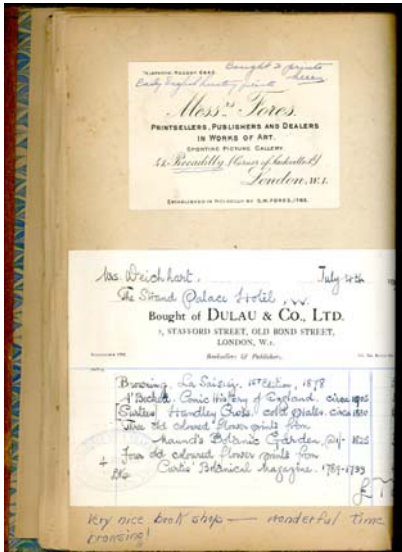 Bought 2 prints
here
TELEPHONE REGENT
Early English hunting prints
Messrs Fores.
PRINTSELLERS, PUBLISHERS AND DEALERS
IN WORKS OF ART.
SPORTING PICTURE GALLERY
Piccadilly (Corner of Sackville St)
London, W.1.
ESTABLISHED IN PICCADILLY BY S.W. FORES, 1785.
Mrs. Deichhart. July 4th
The Strand Palace Hotel, W.
Bought of DULAU & Co., LTD.
STAFFORD STREET, OLD BOND STREET,
LONDON, W.1.
Booksellers & Publishers.
Browning. La Saisiaz. 1st Edition, 1878
A'Beckett. Comic History of England. circa
[Surtees] Handley Cross. cold plates. circa
old coloured flower prints from
Maund's Botanic Garden, 1825
Four old coloured flower prints from
Curtis' Botanical Magazine. 1789-1799
Very nice book shop — wonderful time
browsing!